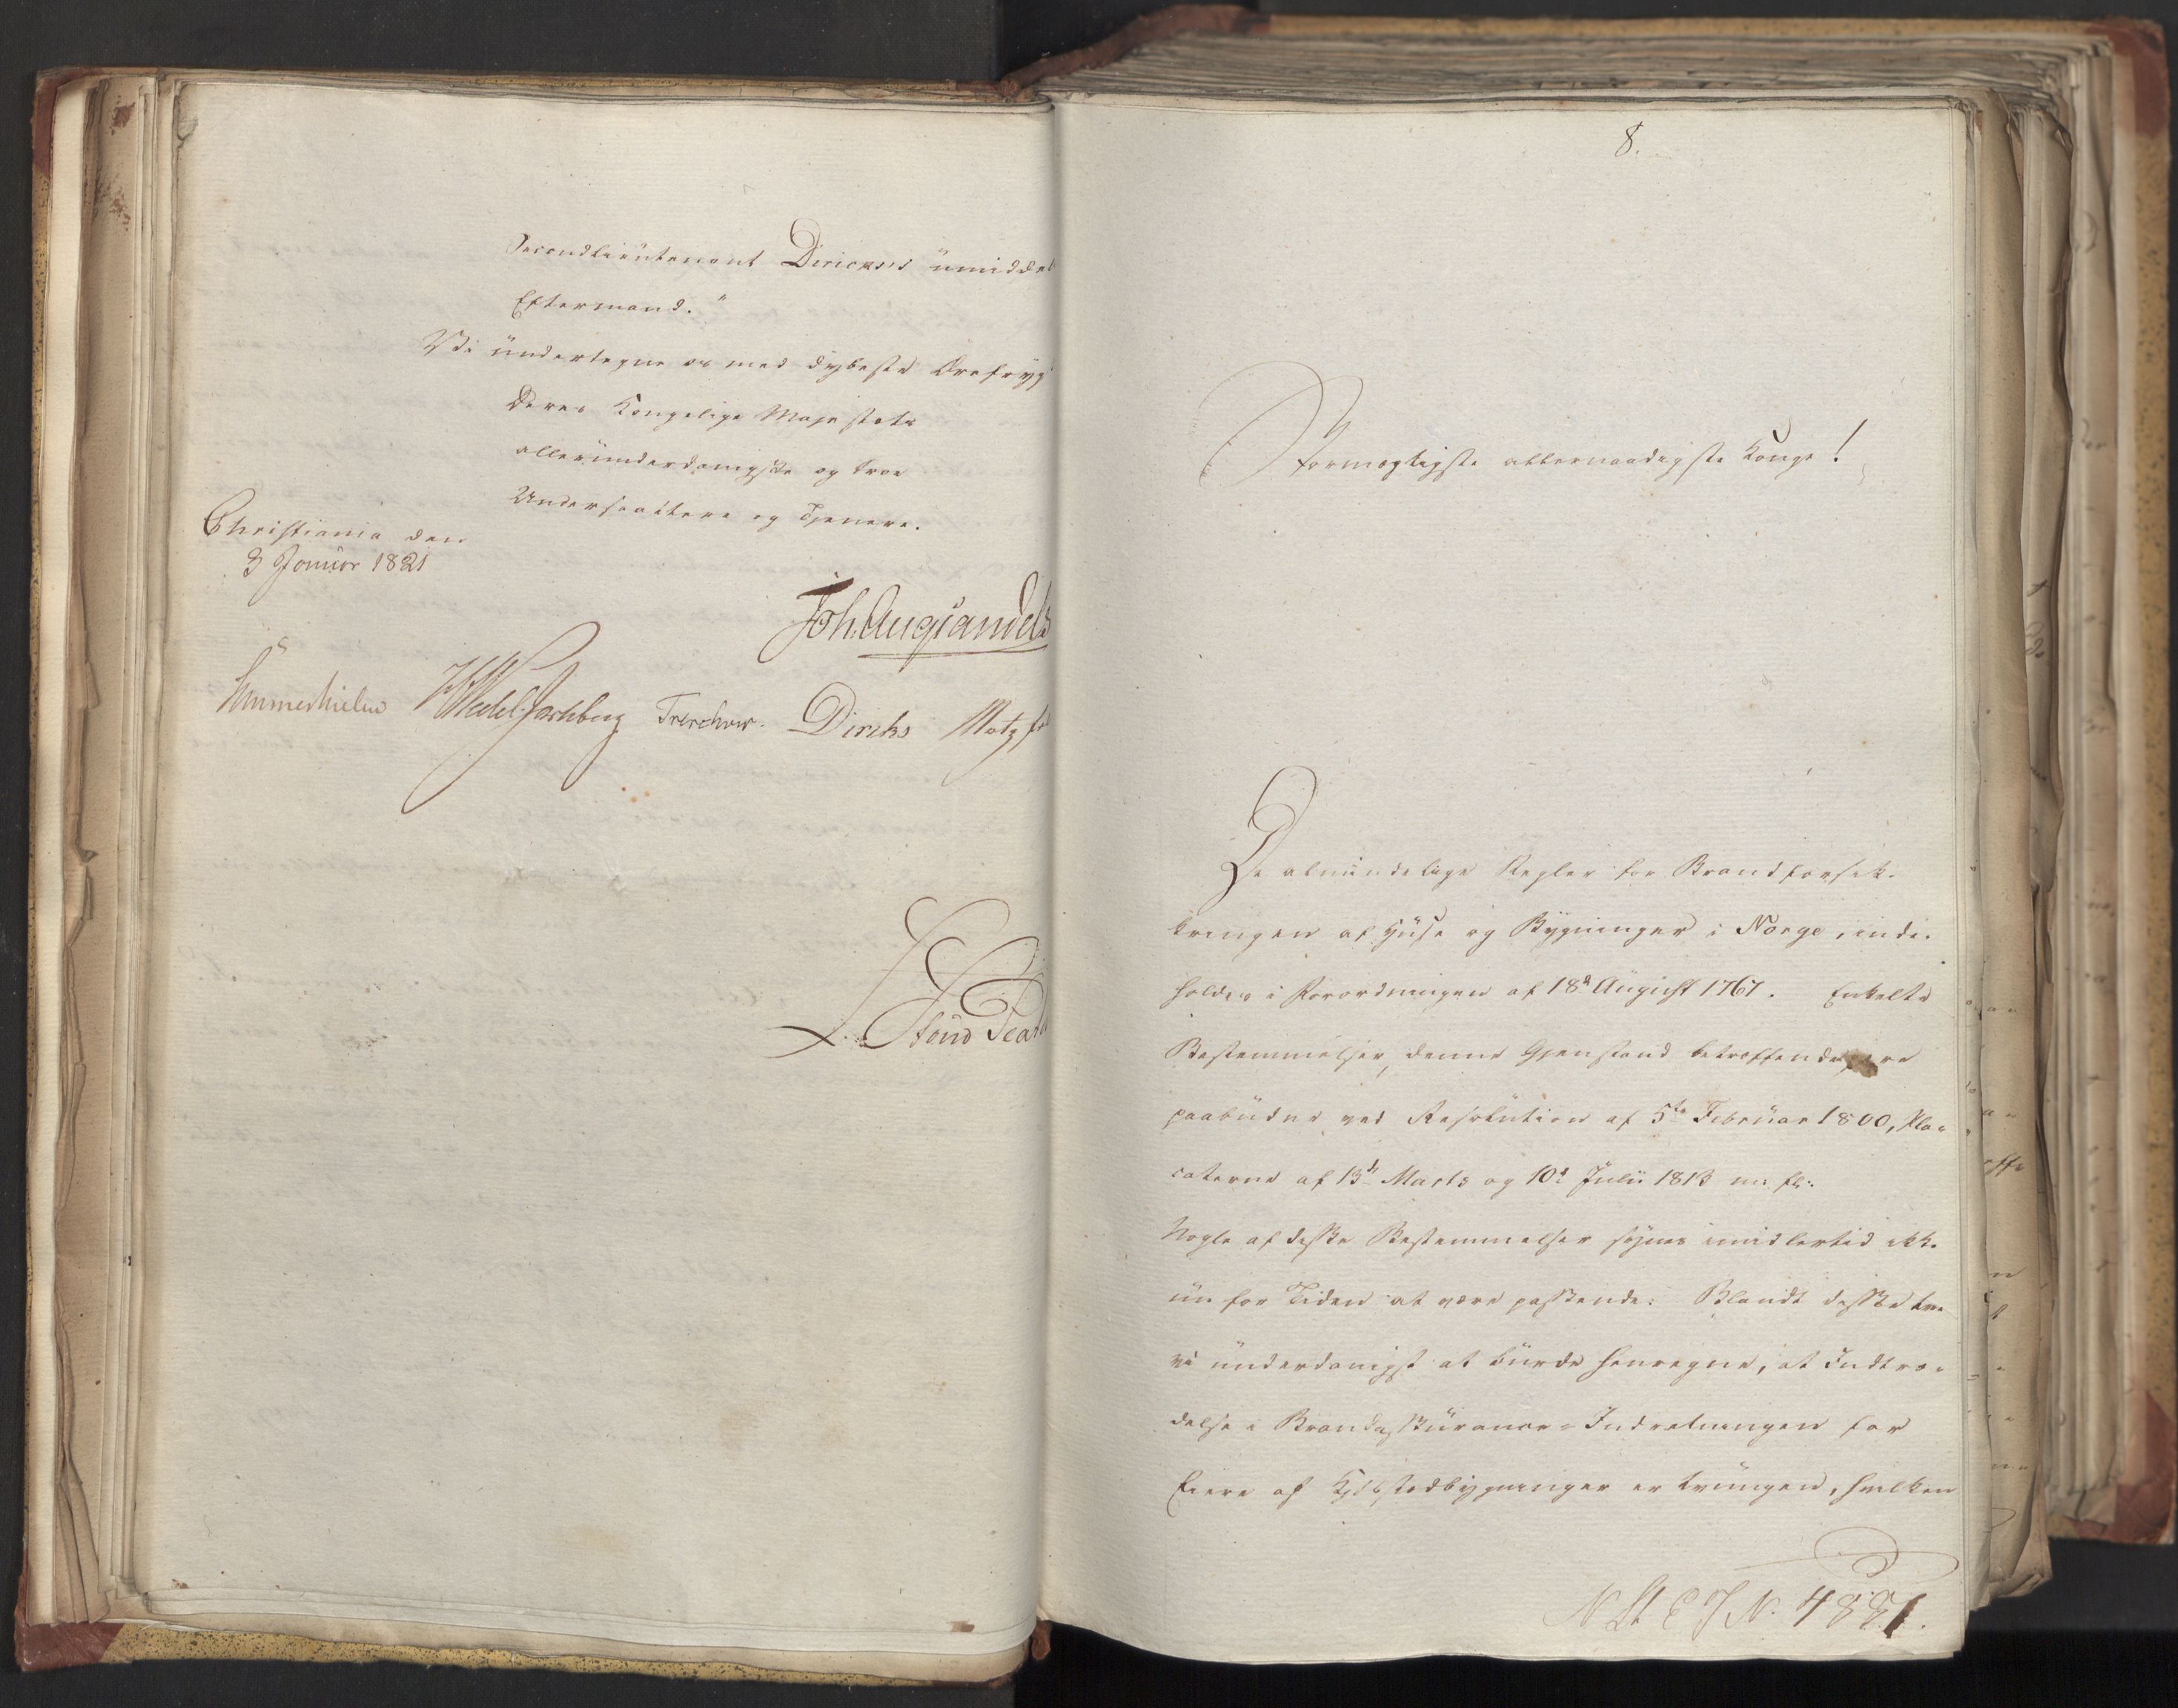 Secondlieutenant Diricksen umiddel
Eftermand."
Vi undertegne os med dybeste Ærefrygt
Deres Kongelige Majestæts
allerunderdanigste og troe
Undersaattere og Tjenere.
Christiania den
3 Januar 1821
Joh. Aug Sandels
Sommerhielm HWedel Jarlsberg Treschow. Diriks Motzfe
8.
Stormægtigste allernaadigste Konge!
De almindelige Regler for Brandforsik-
kringen af Huse og Bygninger i Norge, inde-
holdes i Forordningen af 18d August 1767. Enkelte
Bestemmelser, denne Gjenstand betræffende, ere
paabudne ved Resolution af 5te Februar 1800, Pla-
caterne af 13de Marts og 10d Julii 1813 m: fl:.
Nogle af disse Bestemmelser synes imidlertid ikke
nu for Tiden at være passende. Blandt disse troe
vi underdanigst at burde henregne, at Indtræ-
delse i Brandassurance-Indretningen for
Eiere af Kjøbstadbygninger er tvungen, hvilken
N St E J No. 4881.